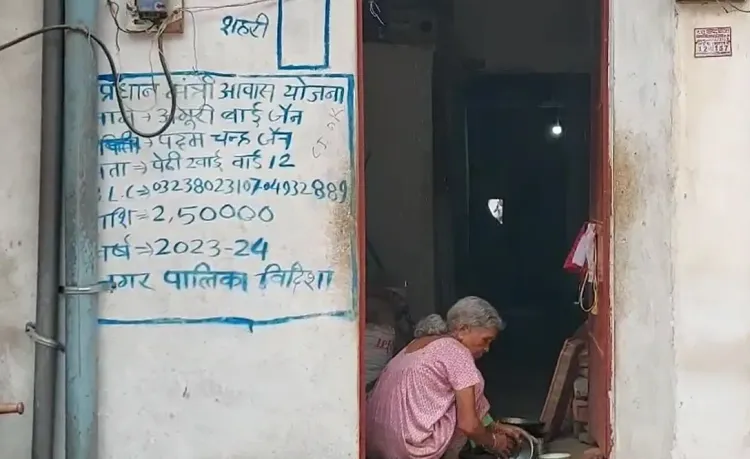 शहरी
प्रधान मंत्री आवास योजना
नाम → अंगूरी बाई जैन
पदम चन्द्र जैन
पता ⇒ पेढी रवाई वार्ड 12
B.L.C ⇒ 0323802310704932889
राशि = 2,50000
वर्ष → 2023-24
नगर पालिका विदिशा